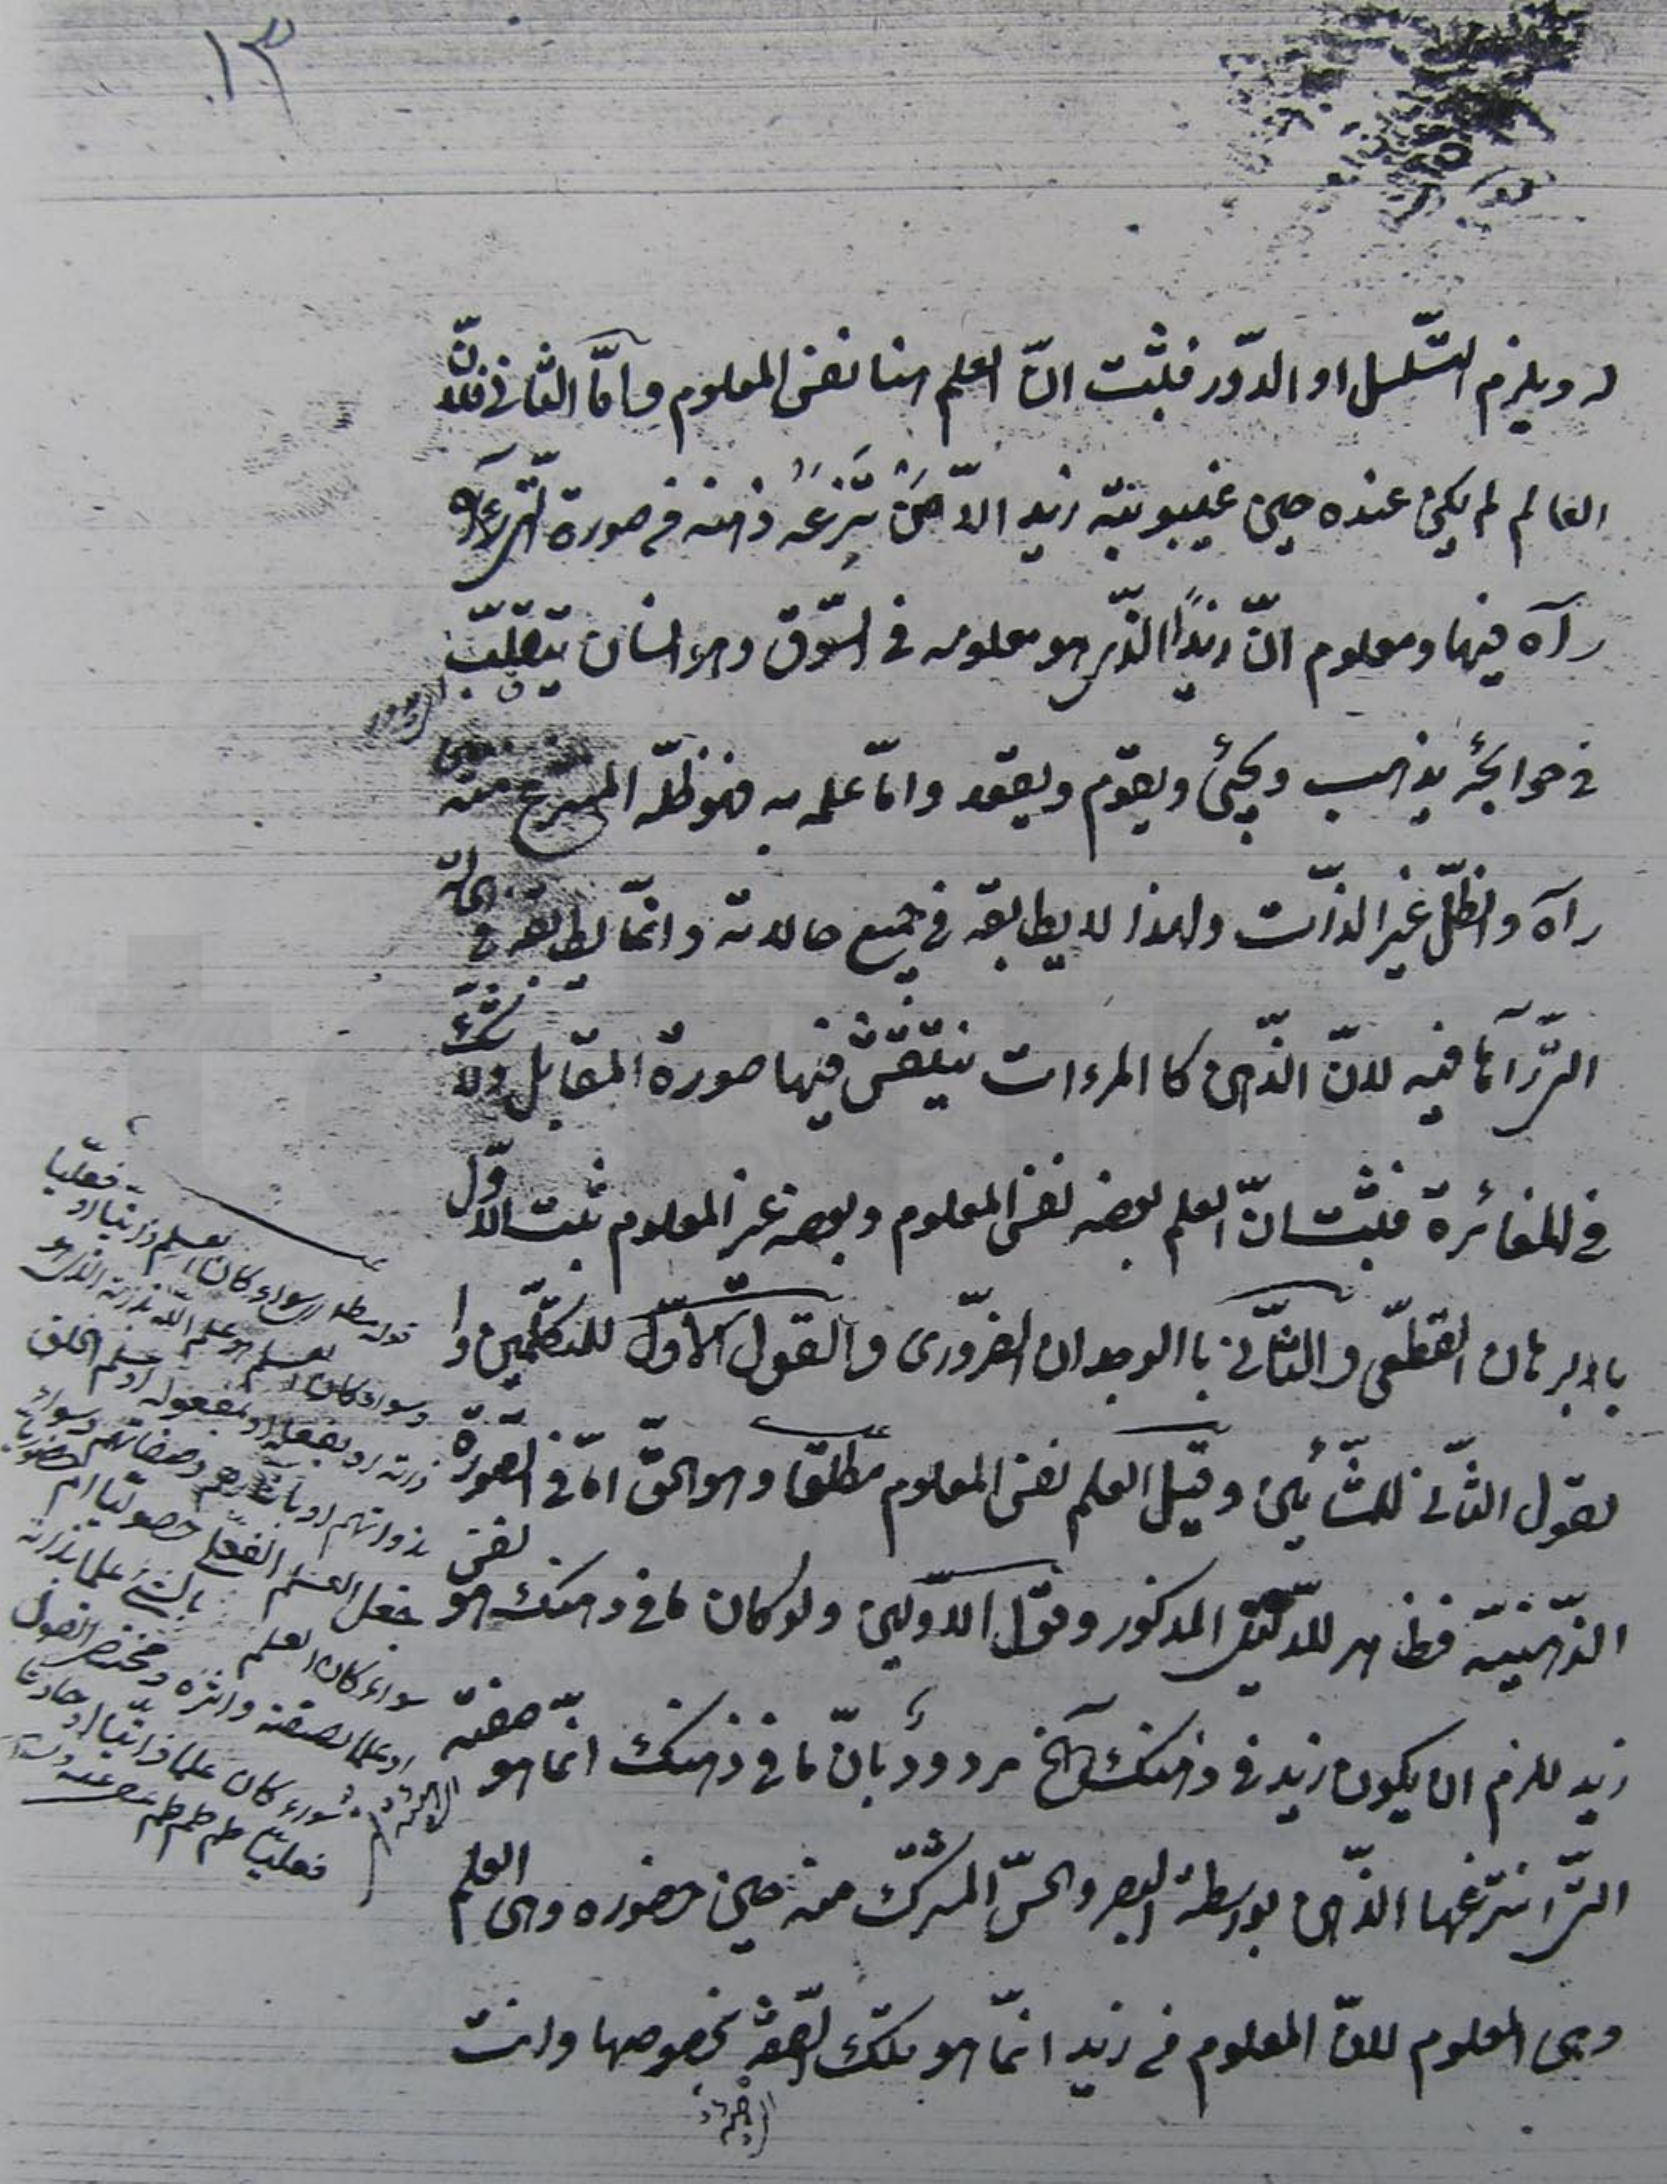 ١٣
له ويلزم التّسلسل او الدّور فثبت انّ العلم هنا نفس المعلوم وامّا الثانى فلانّ
العالم لم يكن عنده حين غيبوبته زيد الّا ينتزعه ذهنه فى صورة الّتى
رآه فيها ومعلوم انّ زيدًا الذّى هو معلومه فى السّوق وهو انسان يتقلّب
فى حوائجه يذهب ويجئ ويقوم ويقعد وامّا علمه به فهو ظلّه المنتزع منه
رآه والظلّ غير الذّات ولهذا لا يطابقه فى جميع حالاته وانّما يطابقه فى الحالة
الّتى رآها فيه لانّ الذّهن كا المرءات ينتقش فيها صورة المقابل ولا شكّ
فى المغائرة فثبت انّ العلم بعضه نفس المعلوم وبعضه غير المعلوم ثبت الاوّل
باابرهان القطعّى والثّانى باالوجدان الضرّورى والقول الاوّل للمتكلّمين وا
لقول الثّانى للمشّائين وقيل العلم نفس المعلوم مطلقا وهو الحقّ امّا فى الصّورة
الذّهنيّة فظاهر للدّليل المذكور وقول الاوّلين ولو كان ما فى ذهنك هو نفس
زيد للزم ان يكون زيد فى ذهنك الخ مردودٌ بانّ ما فى ذهنك انّما هو صفته
الّتى انتزعها الذّهن بواسطة البصر والحسّ المشترك منه حين حضوره وهى العلم
وهى المعلوم لانّ المعلوم فى زيد انّما هو تلك الصّفة بخصوصها وانت
قوله مطلقا سواء كان العلم ذاتيّا او فعليّا
وسواء كان العلم هو علم اللّه بذاته الذى هو
ذاته او بفعله او بمفعوله او علم الخلق
بذواتهم او وصفاتهم وسواء
جعل العلم الفعلى حصوليّا ام حضوريّا
سواء كان العلم بالشئ علما بذاته
او علما بصفته واثره
سواء كان علما ذاتيّا او حادثا
فعليّا